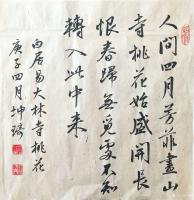 人間四月芳菲盡山
寺桃花始盛開長
恨春歸無覓處不知
轉入此中来
白居易大林寺桃花
庚子四月坤